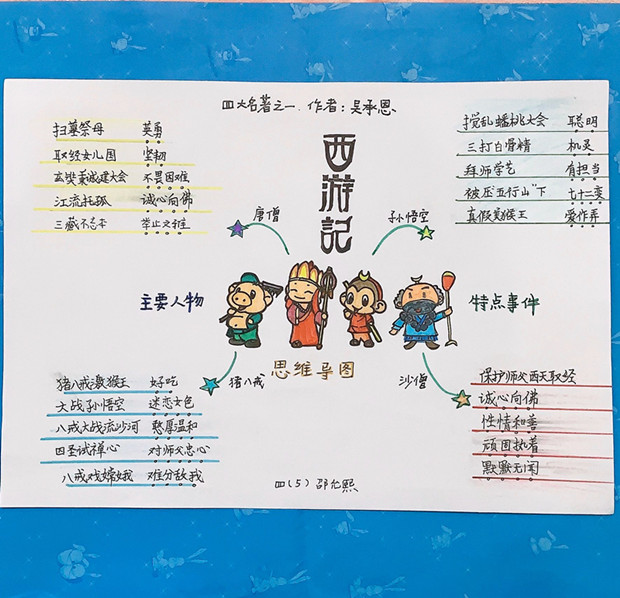 四大名著之一 作者：吴承恩
西游記
扫墓祭母 英勇
取经女儿国 坚韧
玄奘秉诚建大会 不畏困难
江流托孤 诚心向佛
三藏不忘本 举止文雅
唐僧
搅乱蟠桃大会 聪明
三打白骨精 机灵
拜师学艺 有担当
被压五行山"下 七十二变
真假美猴王 爱作弄
孙悟空
主要人物
特点事件
思维导图
猪八戒
猪八戒激猴王 好吃
大战孙悟空 迷恋女色
八戒大战流沙河 憨厚温和
四圣试禅心 对师父忠心
八戒戏嫦娥 难分敌我
沙僧
保护师父西天取经
诚心向佛
性情和善
顽固执着
默默无闻
四(5) 邵允熙